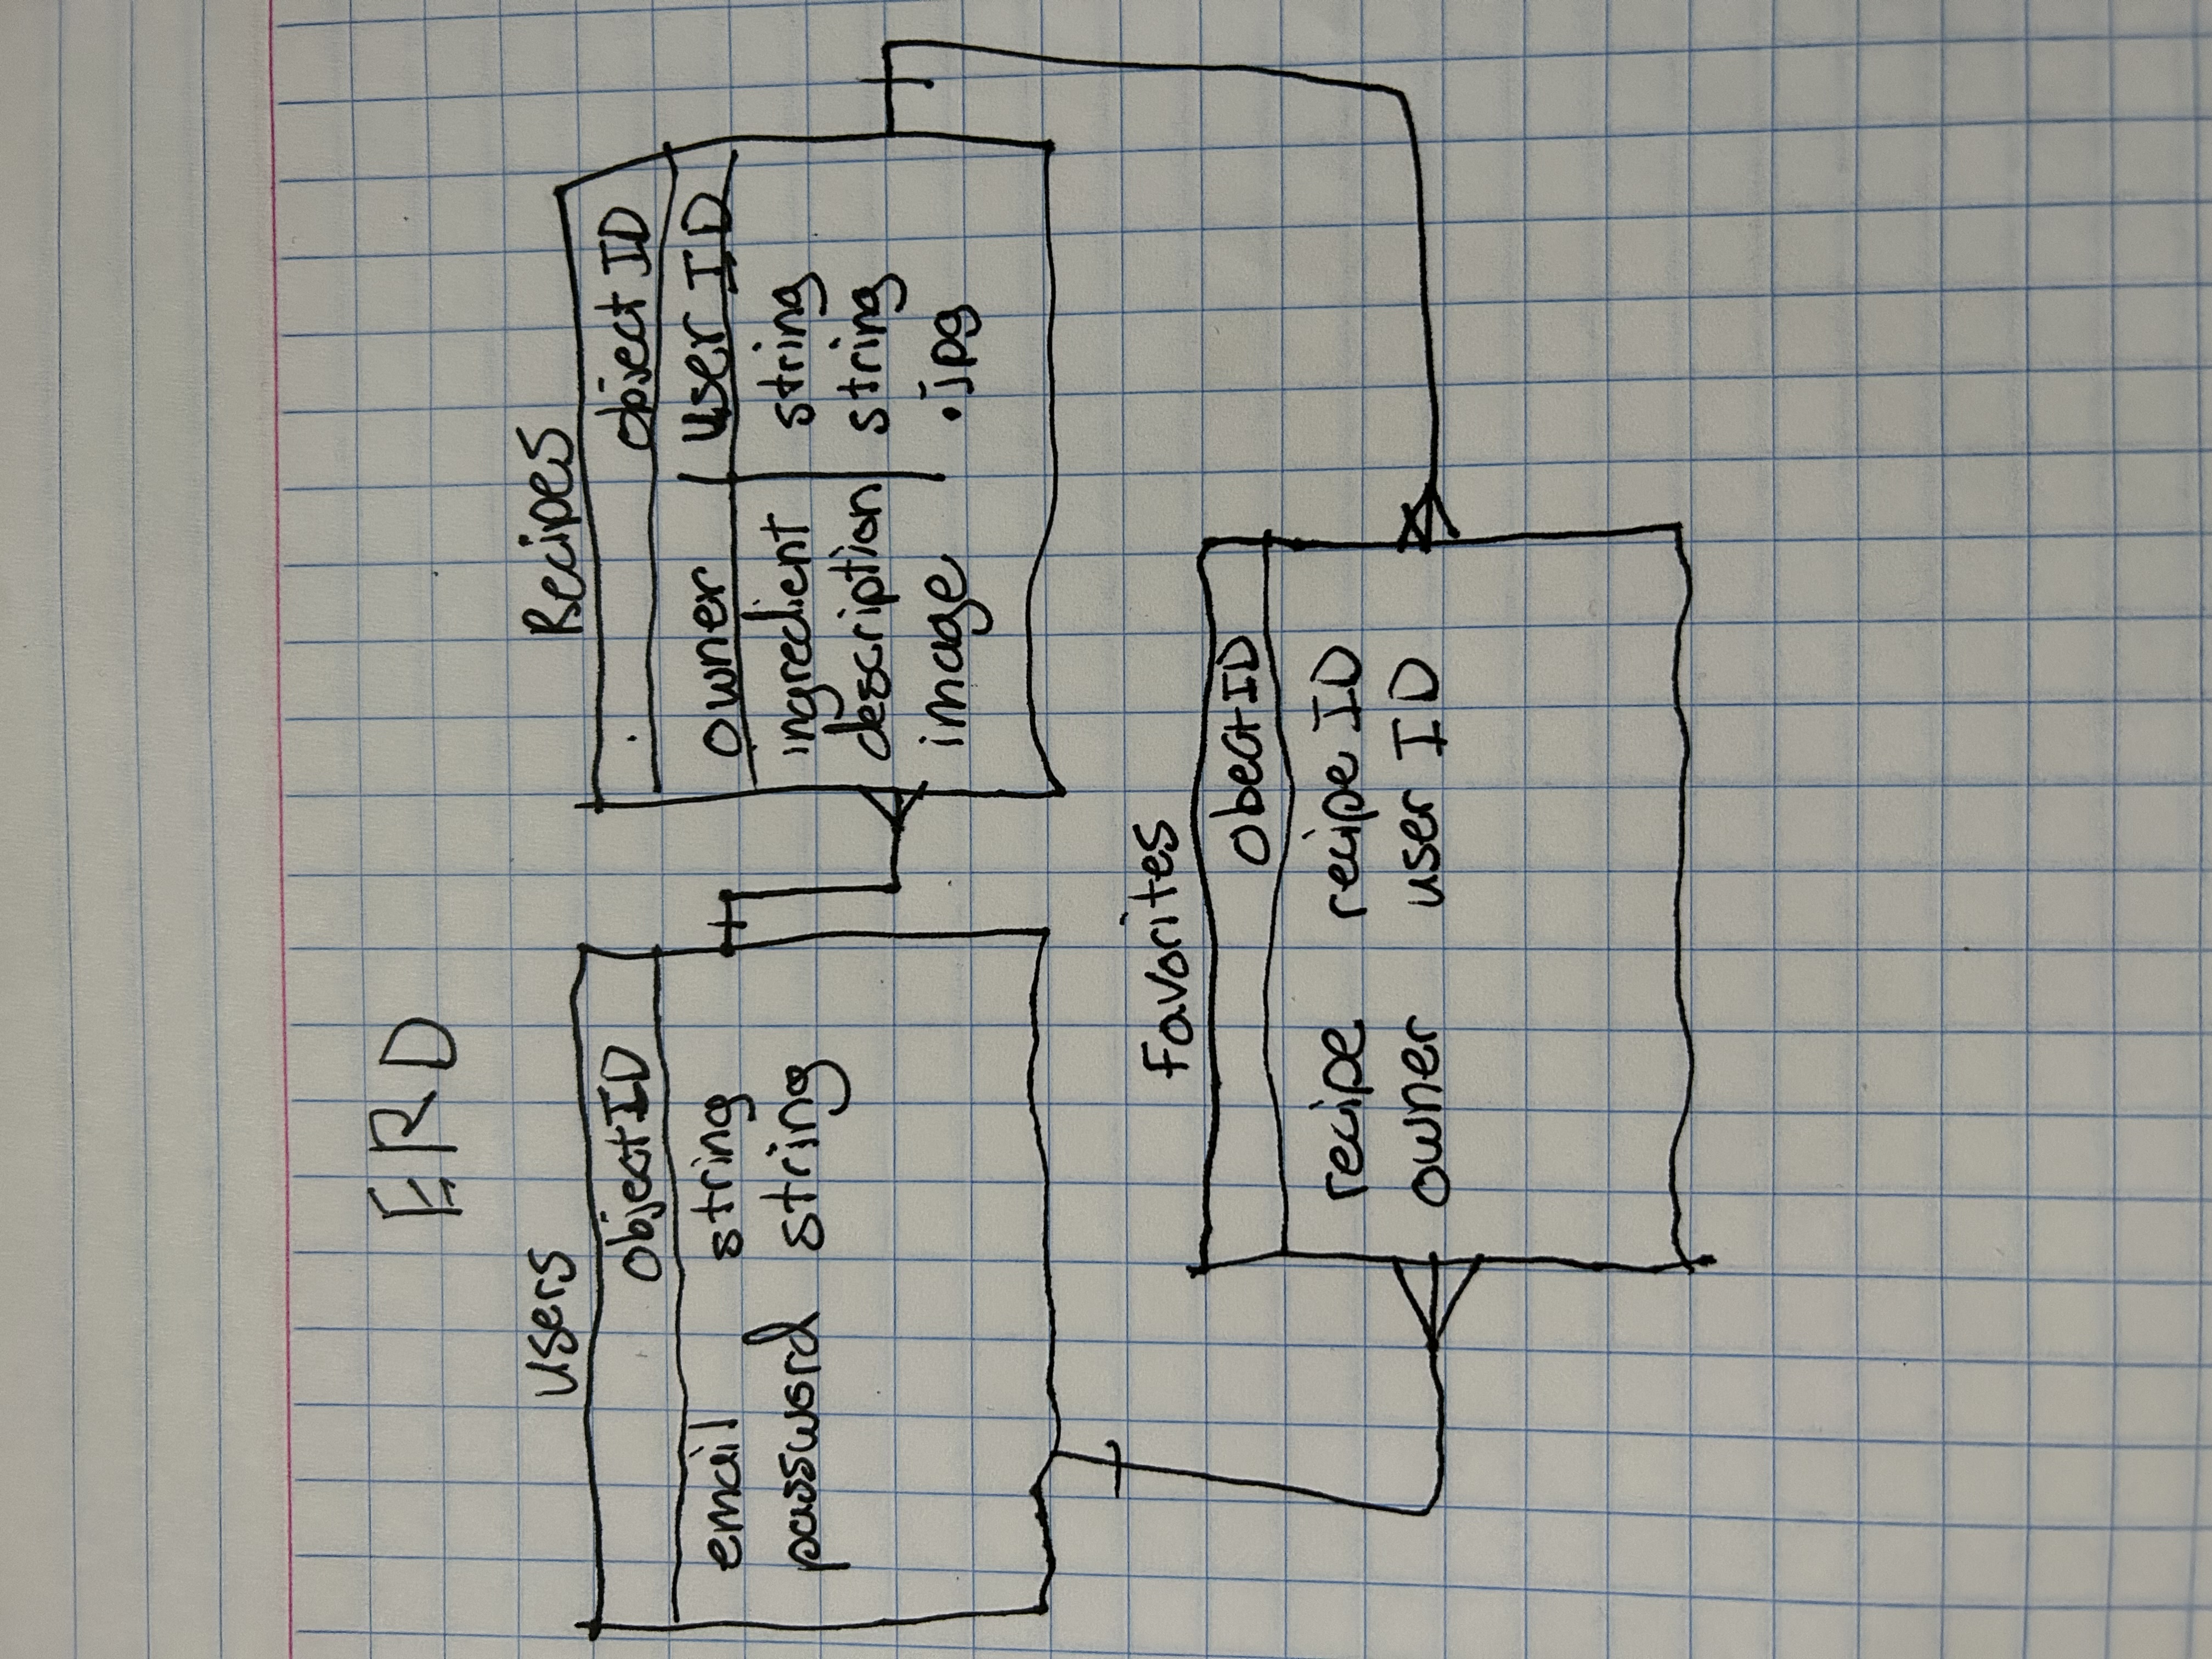 ERD
users
objectID
email string
password string
Recipes
object ID
owner user ID
ingredient string
description string
image .jpg
Favorites
obectID
recipe recipe ID
owner user ID